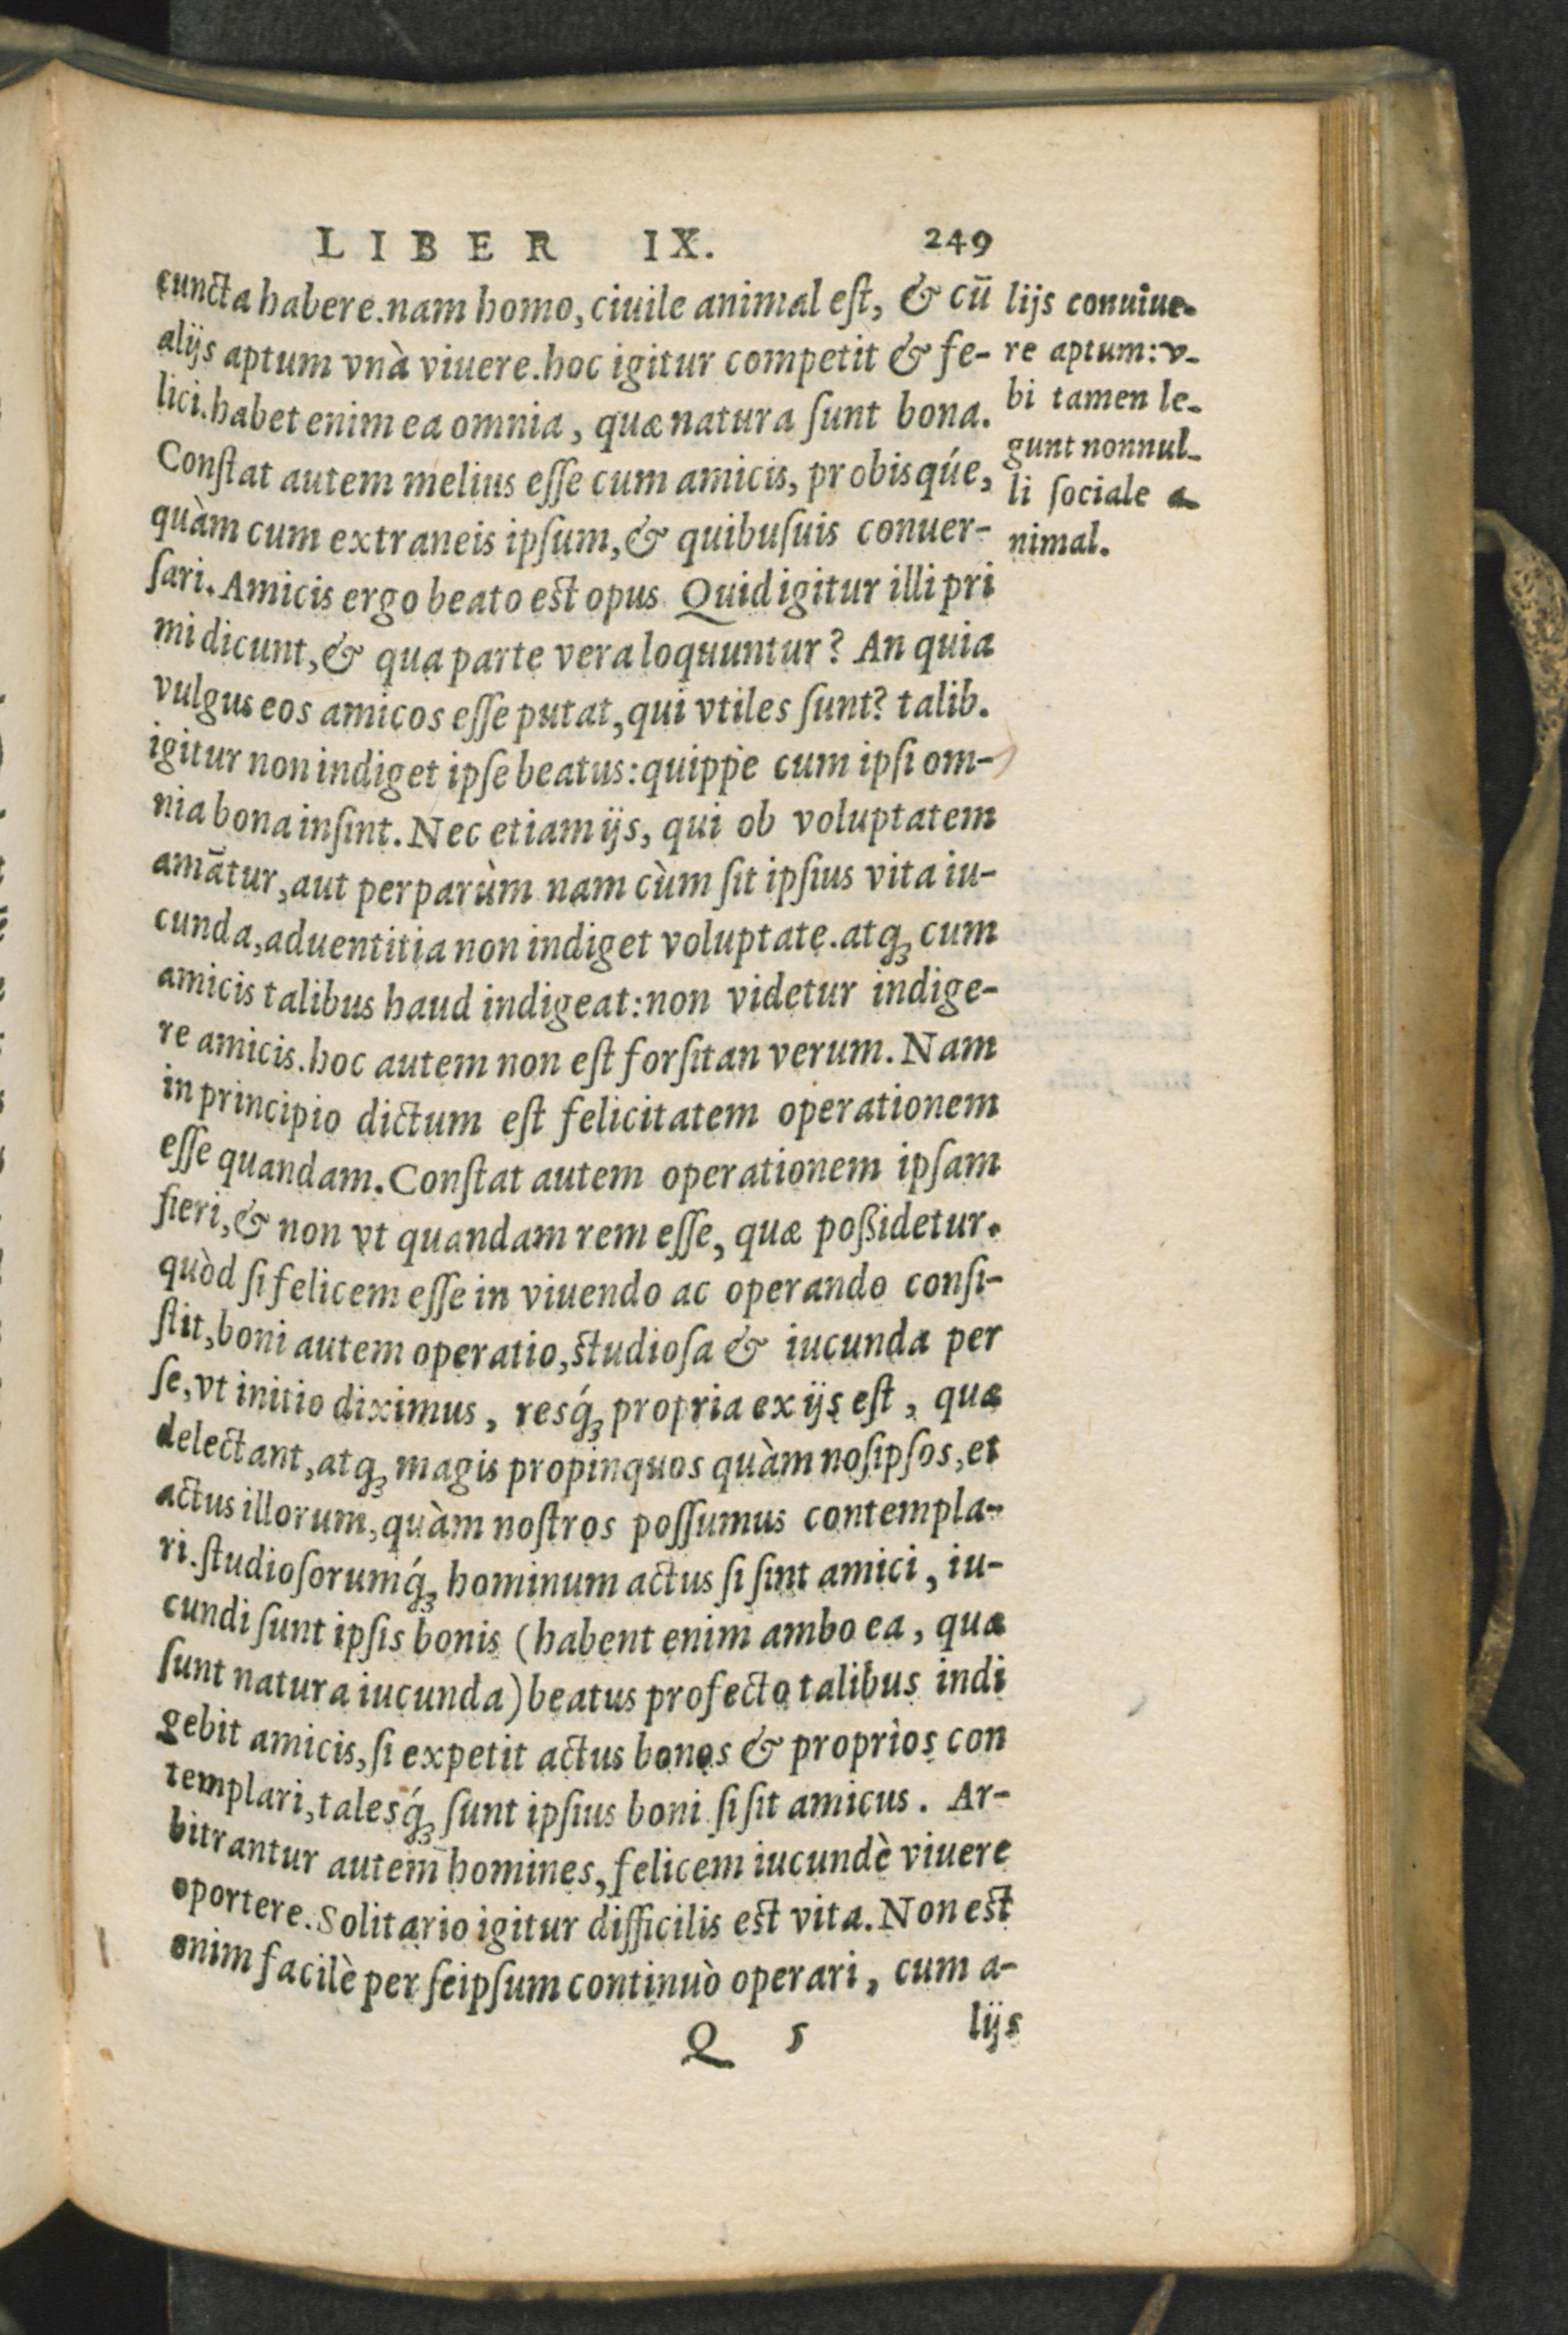 LIBER IX. 249
cuncta habere.nam homo, ciuile animal est, & cū
alijs aptum vnà viuere.hoc igitur competit & fe-
lici.habet enim ea omnia, quæ natura sunt bona.
Constat autem melius esse cum amicis, probisqúe,
quàm cum extraneis ipsum,& quibusuis conuer-
sari. Amicis ergo beato est opus Quid igitur illi pri
mi dicunt,& qua parte vera loquuntur? An quia
vulgus eos amicos esse putat, qui vtiles sunt? talib.
igitur non indiget ipse beatus: quippe cum ipsi om-
nia bona insint. Nec etiam ijs, qui ob voluptatem
amātur, aut perparùm nam cùm sit ipsius vita iu-
cunda, aduentitia non indiget voluptate.atq; cum
amicis talibus haud indigeat: non videtur indige-
re amicis.hoc autem non est forsitan verum. Nam
in principio dictum est felicitatem operationem
esse quandam. Constat autem operationem ipsam
fieri,& non vt quandam rem esse, quæ poßidetur.
quòd si felicem esse in viuendo ac operando consi-
stit, boni autem operatio, studiosa & iucunda per
se, vt initio diximus, resq́; propria ex ijs est, quæ
delectant, atq; magis propinquos quàm nosipsos, et
actus illorum, quàm nostros possumus contempla-
ri. studiosorumq́; hominum actus si sint amici, iu-
cundi sunt ipsis bonis (habent enim ambo ea, quæ
sunt natura iucunda) beatus profecto talibus indi
gebit amicis, si expetit actus bonos & proprios con
templari, talesq́; sunt ipsius boni si sit amicus. Ar-
bitrantur autem homines, felicem iucundè viuere
oportere. Solitario igitur difficilis est vita. Non est
enim facilè per seipsum continuò operari, cum a-
Q 5 lijs
lijs conuiue-
re aptum: v-
bi tamen le-
gunt nonnul-
li sociale a-
nimal.